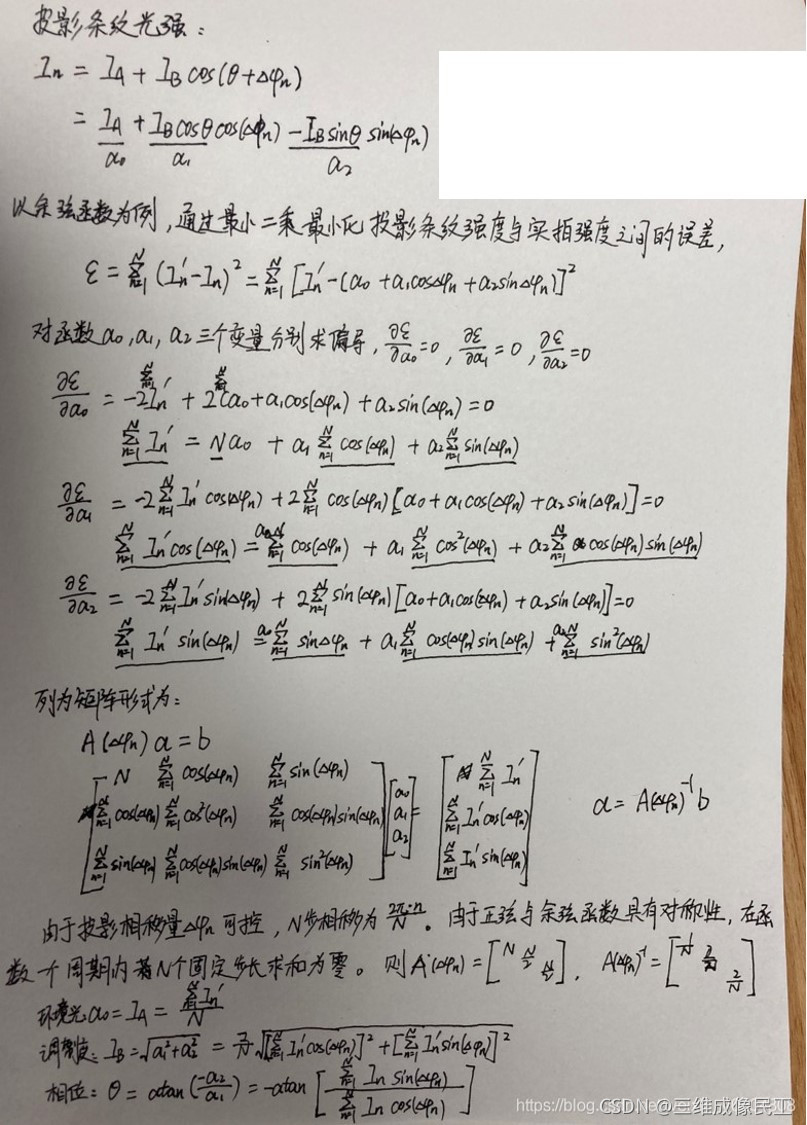 投影条纹光强：
Iₙ = I_A + I_B cos(θ+Δφₙ)
= I_A + I_B cosθ cos(Δφₙ) - I_B sinθ sin(Δφₙ)
a₀ a₁ a₂
以余弦函数为例，通过最小二乘最小化投影条纹强度与实拍强度之间的误差，
ε = Σₙ₌₁ᴺ (Iₙ' - Iₙ)² = Σₙ₌₁ᴺ [Iₙ' - (a₀ + a₁cosΔφₙ + a₂sinΔφₙ)]²
对函数 a₀, a₁, a₂ 三个变量分别求偏导，∂ε/∂a₀=0, ∂ε/∂a₁=0, ∂ε/∂a₂=0
∂ε/∂a₀ = -2Σₙ₌₁ᴺ Iₙ' + 2Σₙ₌₁ᴺ(a₀+a₁cos(Δφₙ)+a₂sin(Δφₙ)=0
Σₙ₌₁ᴺ Iₙ' = Na₀ + a₁Σₙ₌₁ᴺ cos(Δφₙ) + a₂Σₙ₌₁ᴺ sin(Δφₙ)
∂ε/∂a₁ = -2Σₙ₌₁ᴺ Iₙ'cos(Δφₙ) + 2Σₙ₌₁ᴺ cos(Δφₙ)[a₀+a₁cos(Δφₙ)+a₂sin(Δφₙ)]=0
Σₙ₌₁ᴺ Iₙ'cos(Δφₙ) = a₀Σₙ₌₁ᴺ cos(Δφₙ) + a₁Σₙ₌₁ᴺ cos²(Δφₙ) + a₂Σₙ₌₁ᴺ cos(Δφₙ)sin(Δφₙ)
∂ε/∂a₂ = -2Σₙ₌₁ᴺ Iₙ'sin(Δφₙ) + 2Σₙ₌₁ᴺ sin(Δφₙ)[a₀+a₁cos(Δφₙ)+a₂sin(Δφₙ)]=0
Σₙ₌₁ᴺ Iₙ' sin(Δφₙ) = a₀Σₙ₌₁ᴺ sinΔφₙ + a₁Σₙ₌₁ᴺ cos(Δφₙ)sin(Δφₙ) + a₂Σₙ₌₁ᴺ sin²(Δφₙ)
列为矩阵形式为：
A(Δφₙ)a = b
[N Σₙ₌₁ᴺ cos(Δφₙ) Σₙ₌₁ᴺ sin(Δφₙ)] [a₀] [Σₙ₌₁ᴺ Iₙ']
[Σₙ₌₁ᴺ cos(Δφₙ) Σₙ₌₁ᴺ cos²(Δφₙ) Σₙ₌₁ᴺ cos(Δφₙ)sin(Δφₙ)] [a₁] = [Σₙ₌₁ᴺ Iₙ'cos(Δφₙ)] a = A(Δφₙ)⁻¹b
[Σₙ₌₁ᴺ sin(Δφₙ) Σₙ₌₁ᴺ cos(Δφₙ)sin(Δφₙ) Σₙ₌₁ᴺ sin²(Δφₙ)] [a₂] [Σₙ₌₁ᴺ Iₙ'sin(Δφₙ)]
由于投影相移量Δφₙ可控，N步相移为 2π·n/N。由于正弦与余弦函数具有对称性，在函
数一个周期内若N个固定步长求和为零。则A(Δφₙ) = [N N/2 N/2], A(Δφₙ)⁻¹ = [1/N 2/N 2/N]
环境光: a₀ = I_A = Σₙ₌₁ᴺ Iₙ' / N
调制度: I_B = √(a₁²+a₂²) = 2/N √([Σₙ₌₁ᴺ Iₙ'cos(Δφₙ)]² + [Σₙ₌₁ᴺ Iₙ'sin(Δφₙ)]²)
相位: θ = atan(-a₂/a₁) = -atan[Σₙ₌₁ᴺ Iₙ sin(Δφₙ) / Σₙ₌₁ᴺ Iₙ cos(Δφₙ)]
CSDN @三维成像民工